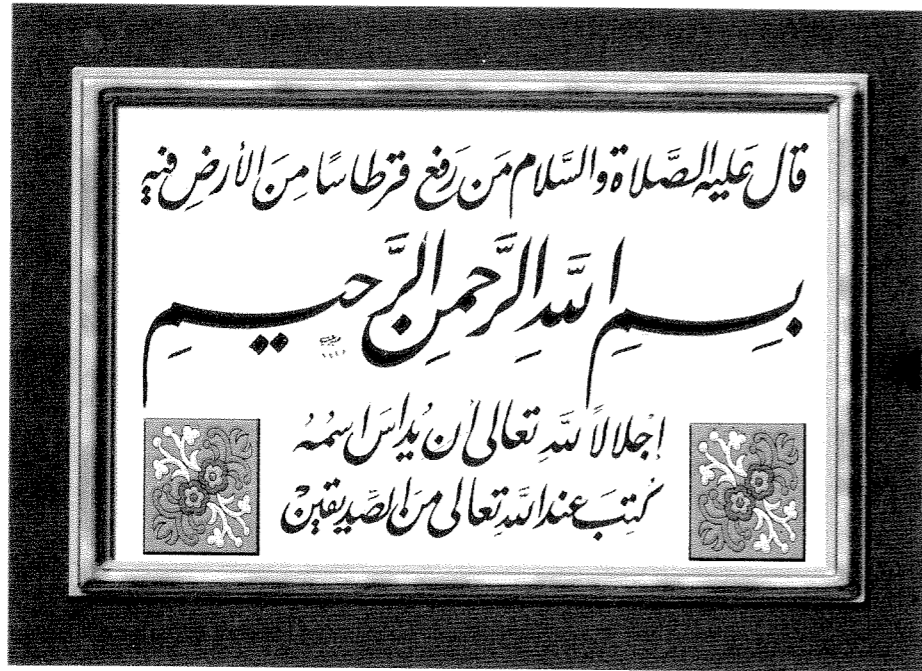 قال عَليه الصَّلاة والسَّلام مَن رَفع قرطاسًا مِنَ الأرضِ فيه
بِسمِ اللَّهِ الرَّحمنِ الرَّحيمِ
إجلالاً للَّهِ تعالى أن يُداسَ اسمُهُ
كُتِبَ عند اللَّهِ تعالى مِنَ الصِّديقين